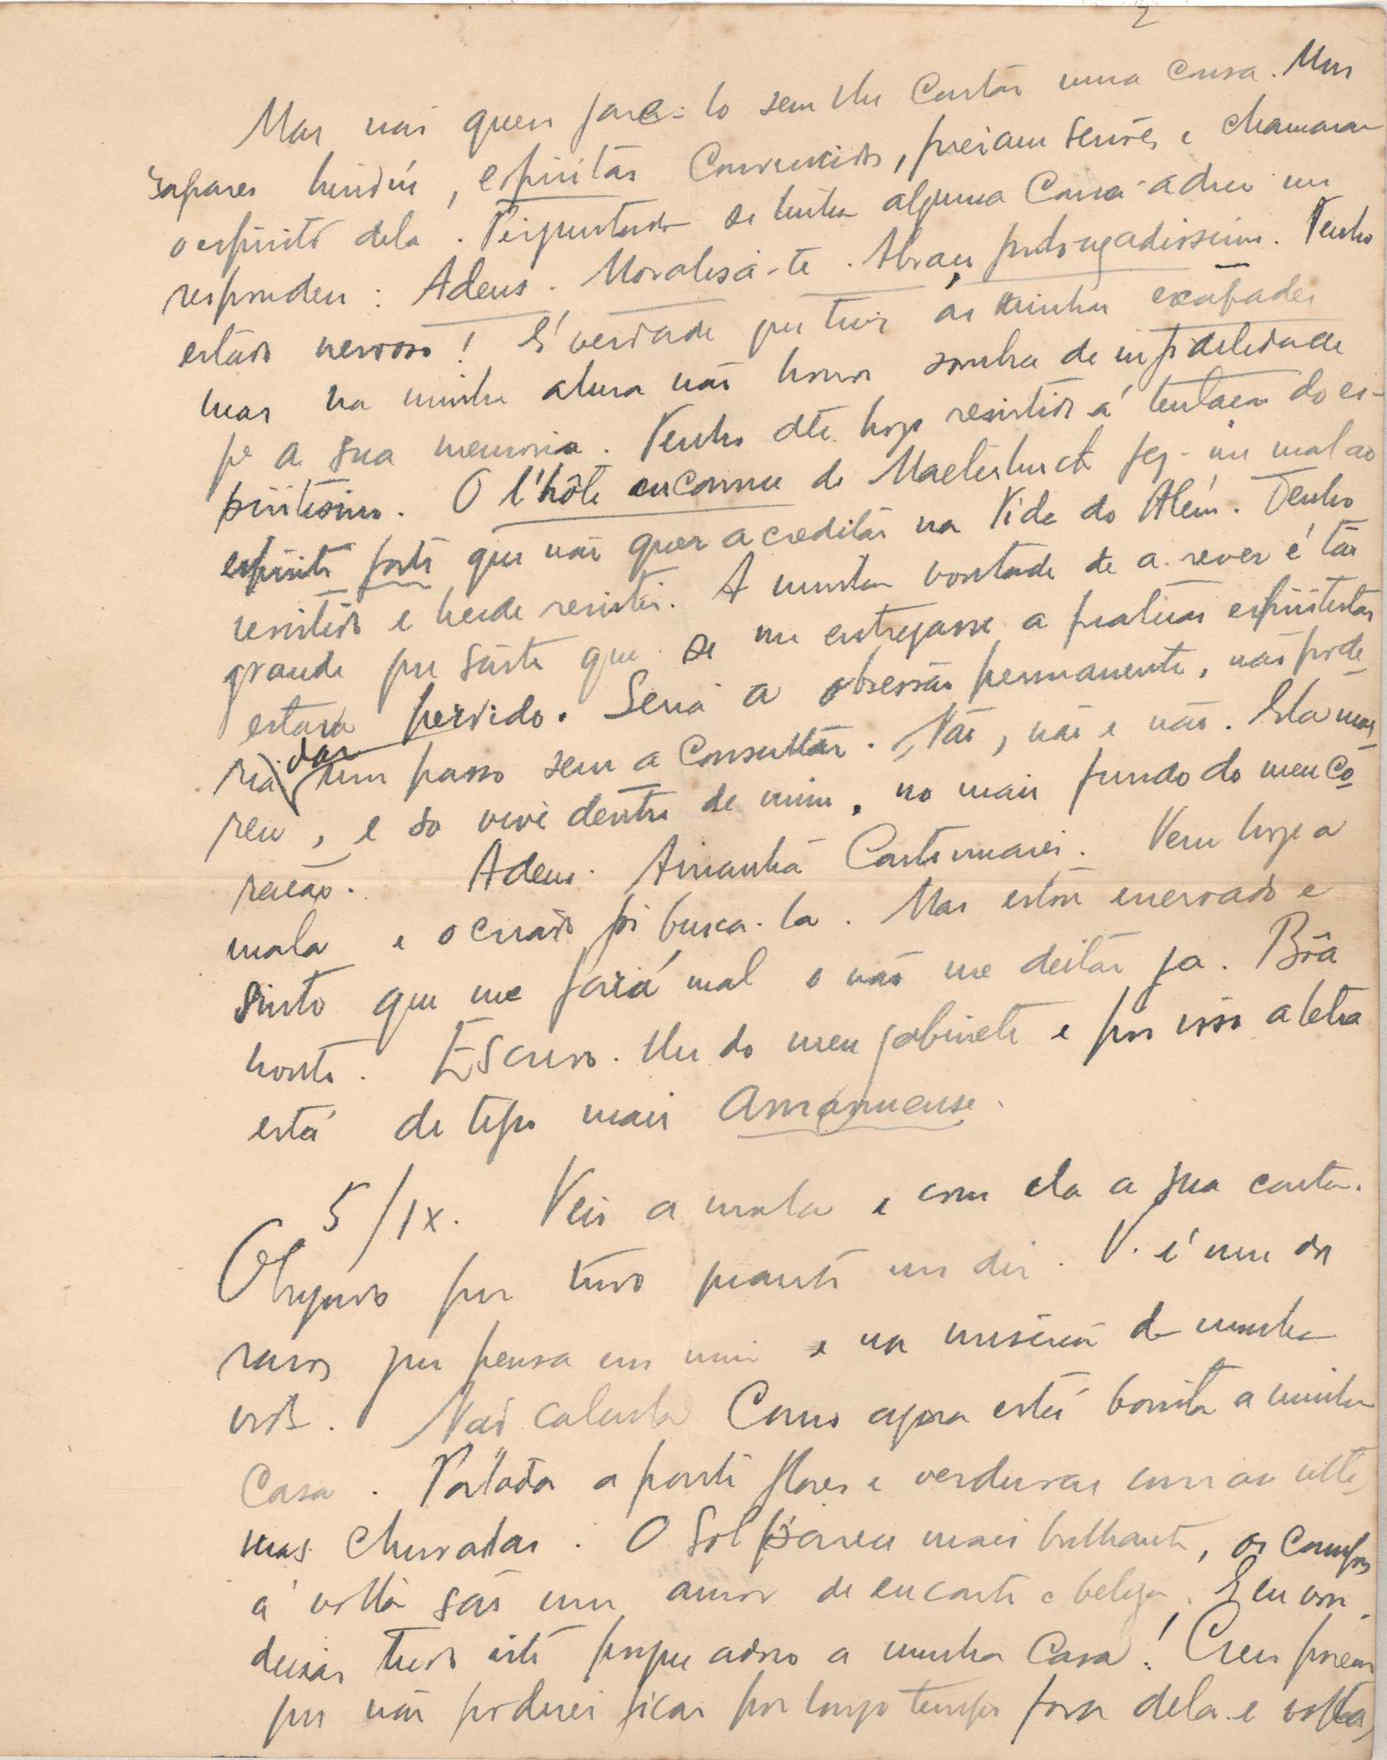 2
Mas não quero faze-lo sem lhe contar uma cousa. Uns
rapazes hindús, espiritas convencidos, fizeram sessões e chamaram
o espirito dela. Perguntado se tinha alguma cousa a dizer
respondeu: Adeus. Moralisa-te. Abraço prolongadissimo. Tenho
estado nervoso! É verdade que tive as minhas escapades
mas na minha alma não houve sombra de infidelidade
pª a sua memoria. Tenho até hoje resistido á tentação do es-
piritismo. O l'hôte inconnu de Maeterlinck fez-me mal ao
espirito forte que não quer acreditar na Vida do Além. Tenho
resistido e heide resistir. A minha vontade de a rever é tão
grande que sinto que se me entregasse a praticas espiritistas
estava perdido. Seria a obsessão permanente, não pode-
ria dar um passo sem a consultar. Não, não e não. Ela mor-
reu, e só vive dentro de mim, no mais fundo do meu co-
ração. Adeus. Amanhã continuarei. Vem hoje a
mala e o criado foi busca-la. Mas estou enervado e
sinto que me fará mal o não me deitar já. Bôa
noute. Escrevo-lhe do meu gabinete e por isso a letra
está de typo mais amanuense.
5/IX. Veio a mala e com ela a sua carta.
Obrigado por tudo quanto me diz. V. é um dos
raros que pensa em mim e na miseria da minha
vida. Não calcula como agora está bonita a minha
casa. Portada a ponte flores e verduras com as ulti-
mas chuvadas. O sol parece mais brilhante, os campos
á volta são um amor de encanto e beleza. E eu vou
deixar tudo isto porque adoro a minha casa! Creio porem
que não poderei ficar por longo tempo fora dela e volta,